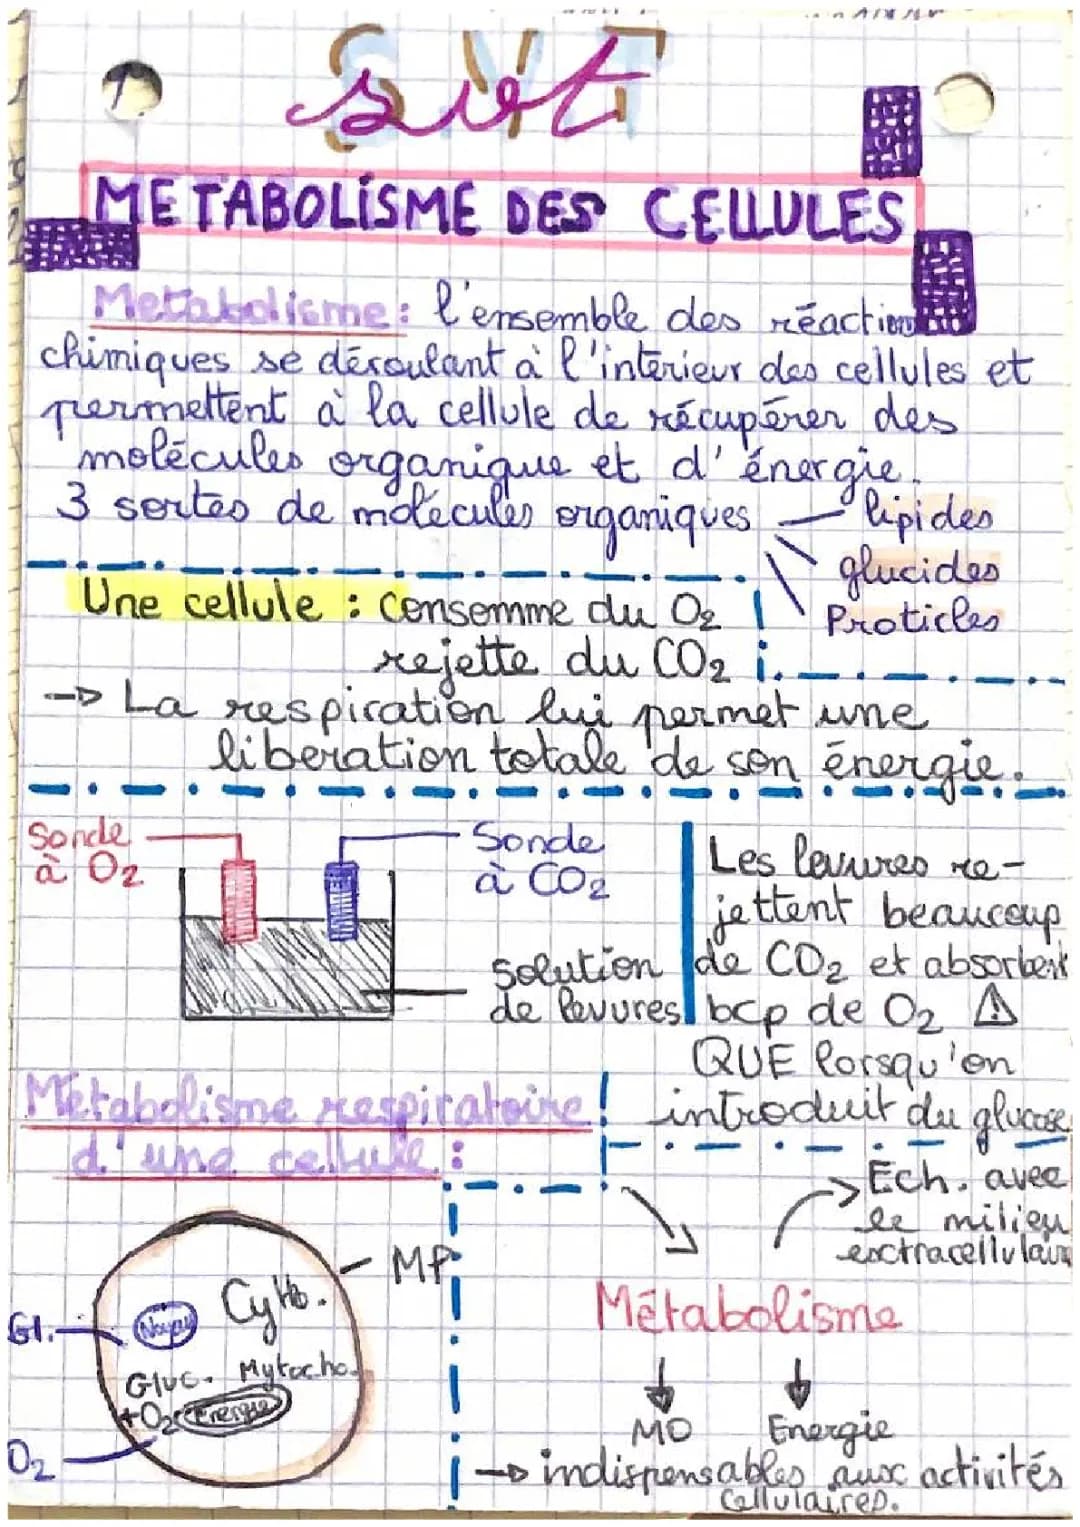 SVT
svt
METABOLISME DES CELLULES
Metabolisme : l'ensemble des réactions
chimiques se déroulant à l'intérieur des cellules et
permettent à la cellule de récupérer des
molécules organique et d'énergie.
3 sortes de molécules organiques — lipides
glucides
Proticles
Une cellule : consomme du O2
rejette du CO2
→ La respiration lui permet une
liberation totale de son énergie.
Sonde
à O2
Sonde
à CO2
solution
de levures
Les levures re-
jettent beaucoup
de CO2 et absorbent
bcp de O2 ⚠
QUE lorsqu'on
introduit du glucose
Métabolisme respiratoire
d'une cellule :
MP
Cyto.
Gl.
Noyau
Gluc. Mytocho.
+O2 Energie
O2
Ech. avec
le milieu
exctracellulaire
Métabolisme
MO Energie
→ indispensables aux activités
cellulaires.